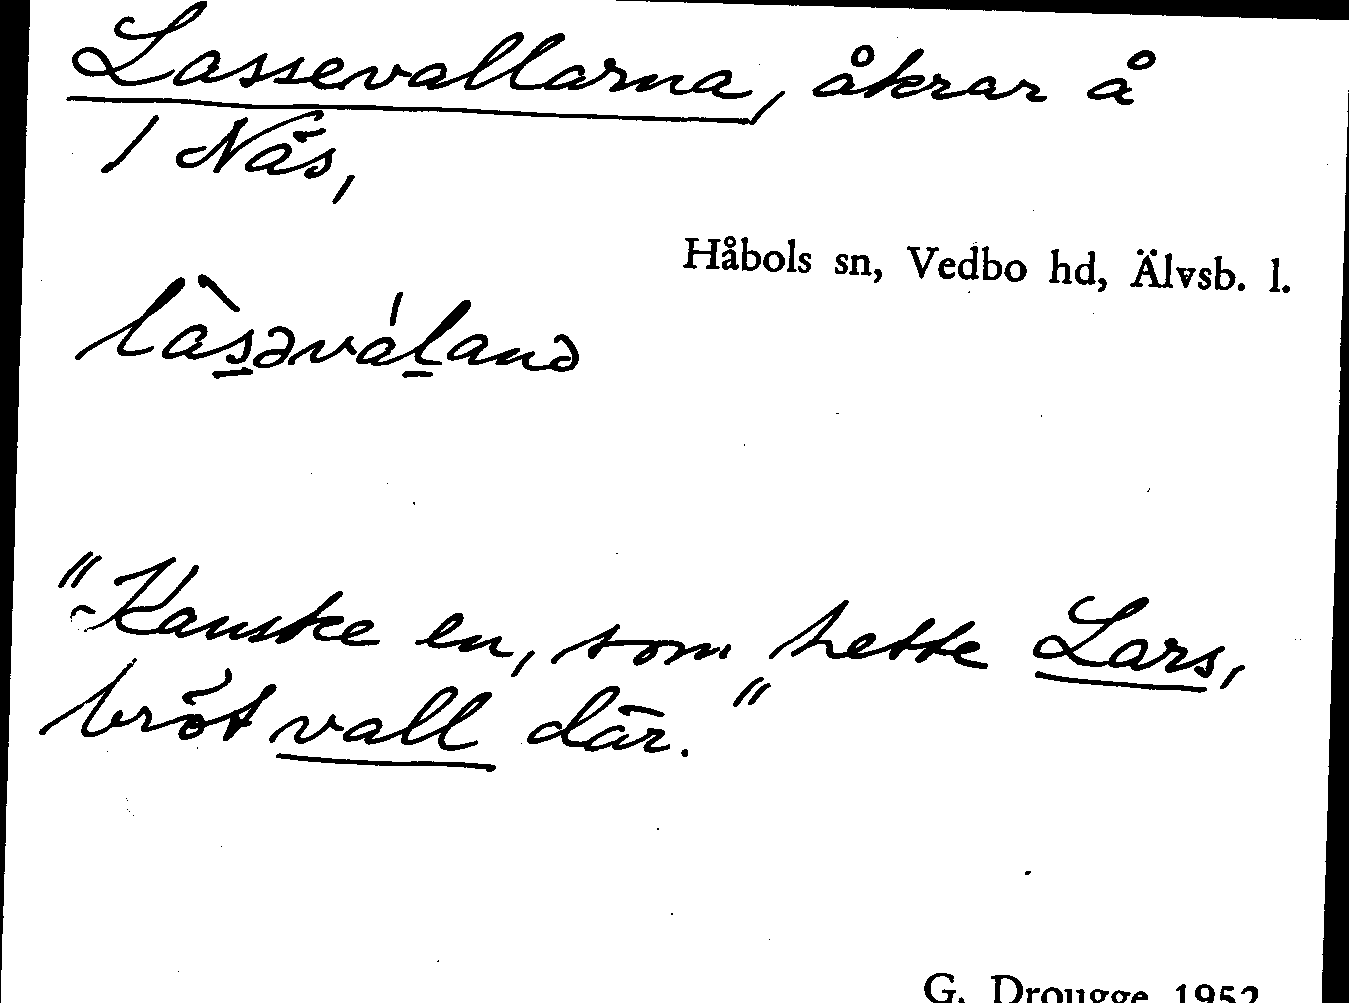 Lassevallarna, åkrar å
1 Näs,
Håbols sn, Vedbo hd, Älvsb. l.
là̱səváḻanə
"Kanske en, som hette Lars,
bröt vall där."
G. Drougge 1952